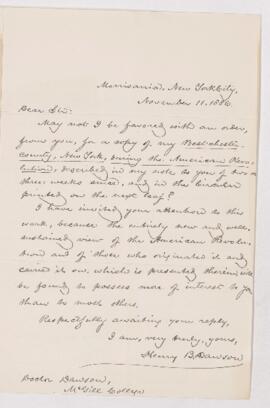 Morrisania, New York City,
November 11, 1886.
Dear Sir:
May not I be favored with an order,
from you, for a copy of my Westchester-
County, New York, during the American Revo-
lution, described in my note to you of two or
three weeks since, and in the Circular
printed on the next leaf?
I have invited your attention to this
work, because the entirely new and well-
sustained view of the American Revolu-
tion and of those who originated it and
carried it on, which is presented therein, will
be found to possess more of interest to you
than to most others.
Respectfully awaiting your reply,
I am, very truly, yours,
Henry B. Dawson
Doctor Dawson,
McGill College